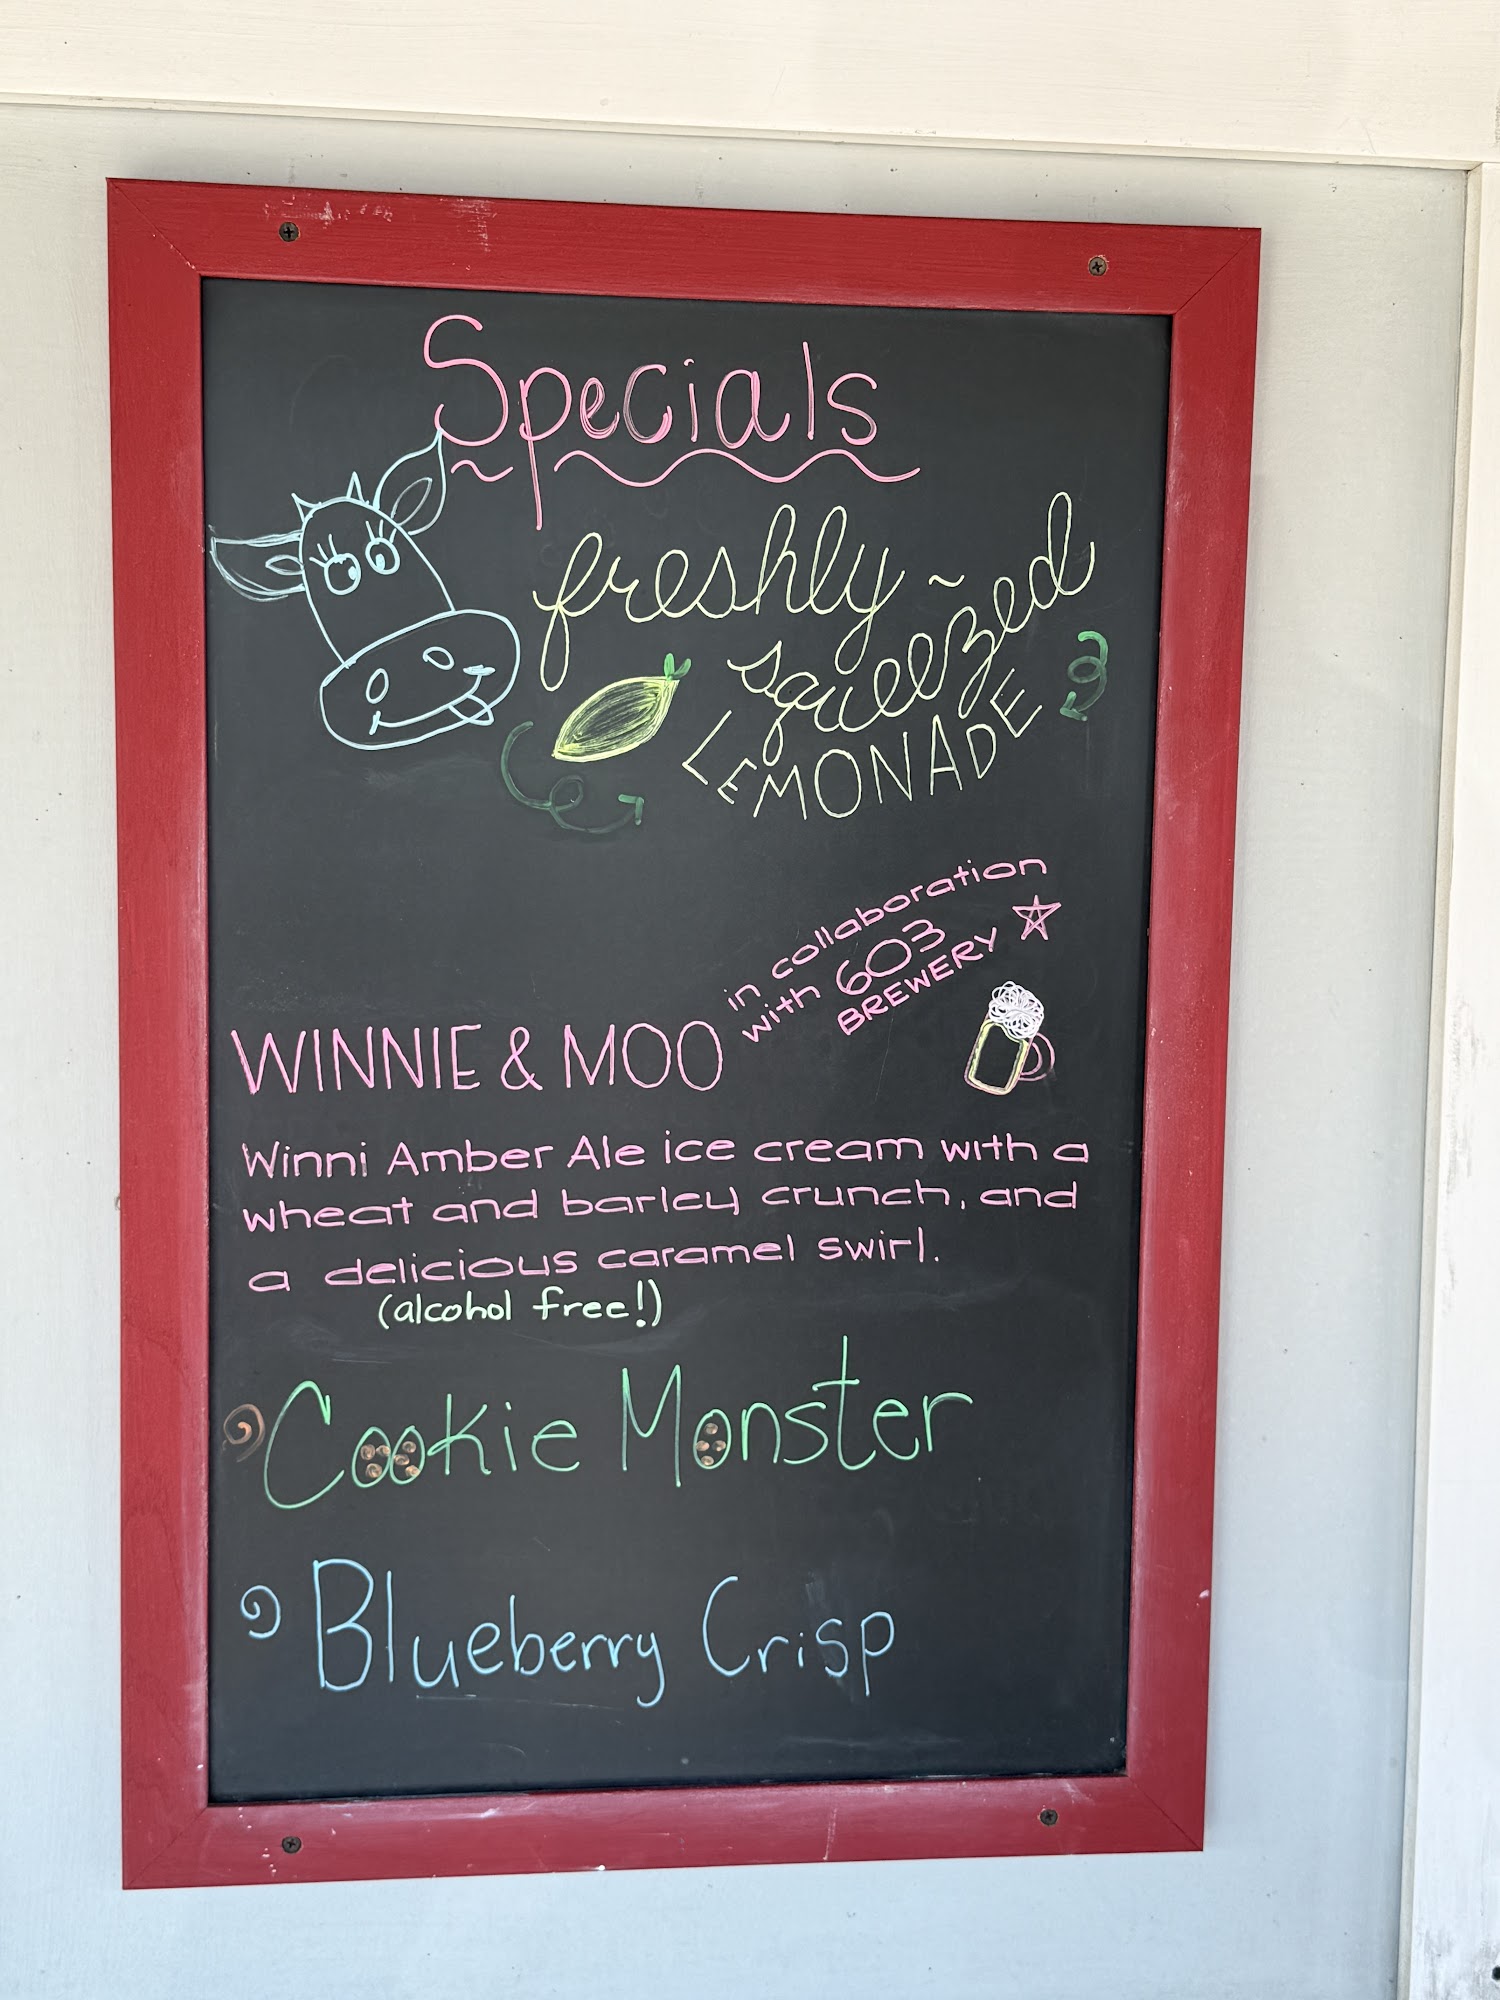 Specials
freshly~
squeezed
LEMONADE
in collaboration
with 603
BREWERY
WINNIE & MOO
Winni Amber Ale ice cream with a
wheat and barley crunch, and
a delicious caramel swirl.
(alcohol free!)
Cookie Monster
Blueberry Crisp